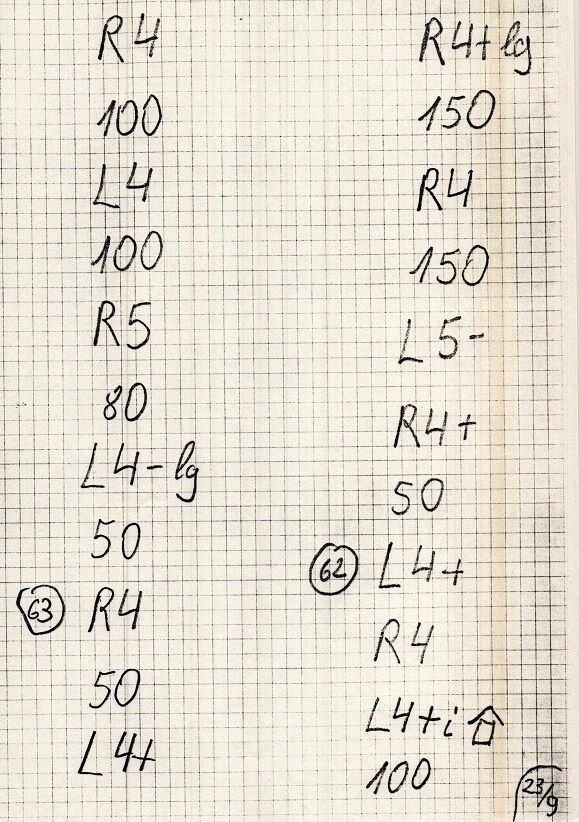 R4
100
L4
100
R5
80
L4- lg
50
63 R4
50
L4+
R4+ lg
150
R4
150
L5-
R4+
50
62 L4+
R4
L4+ i
100
23/9